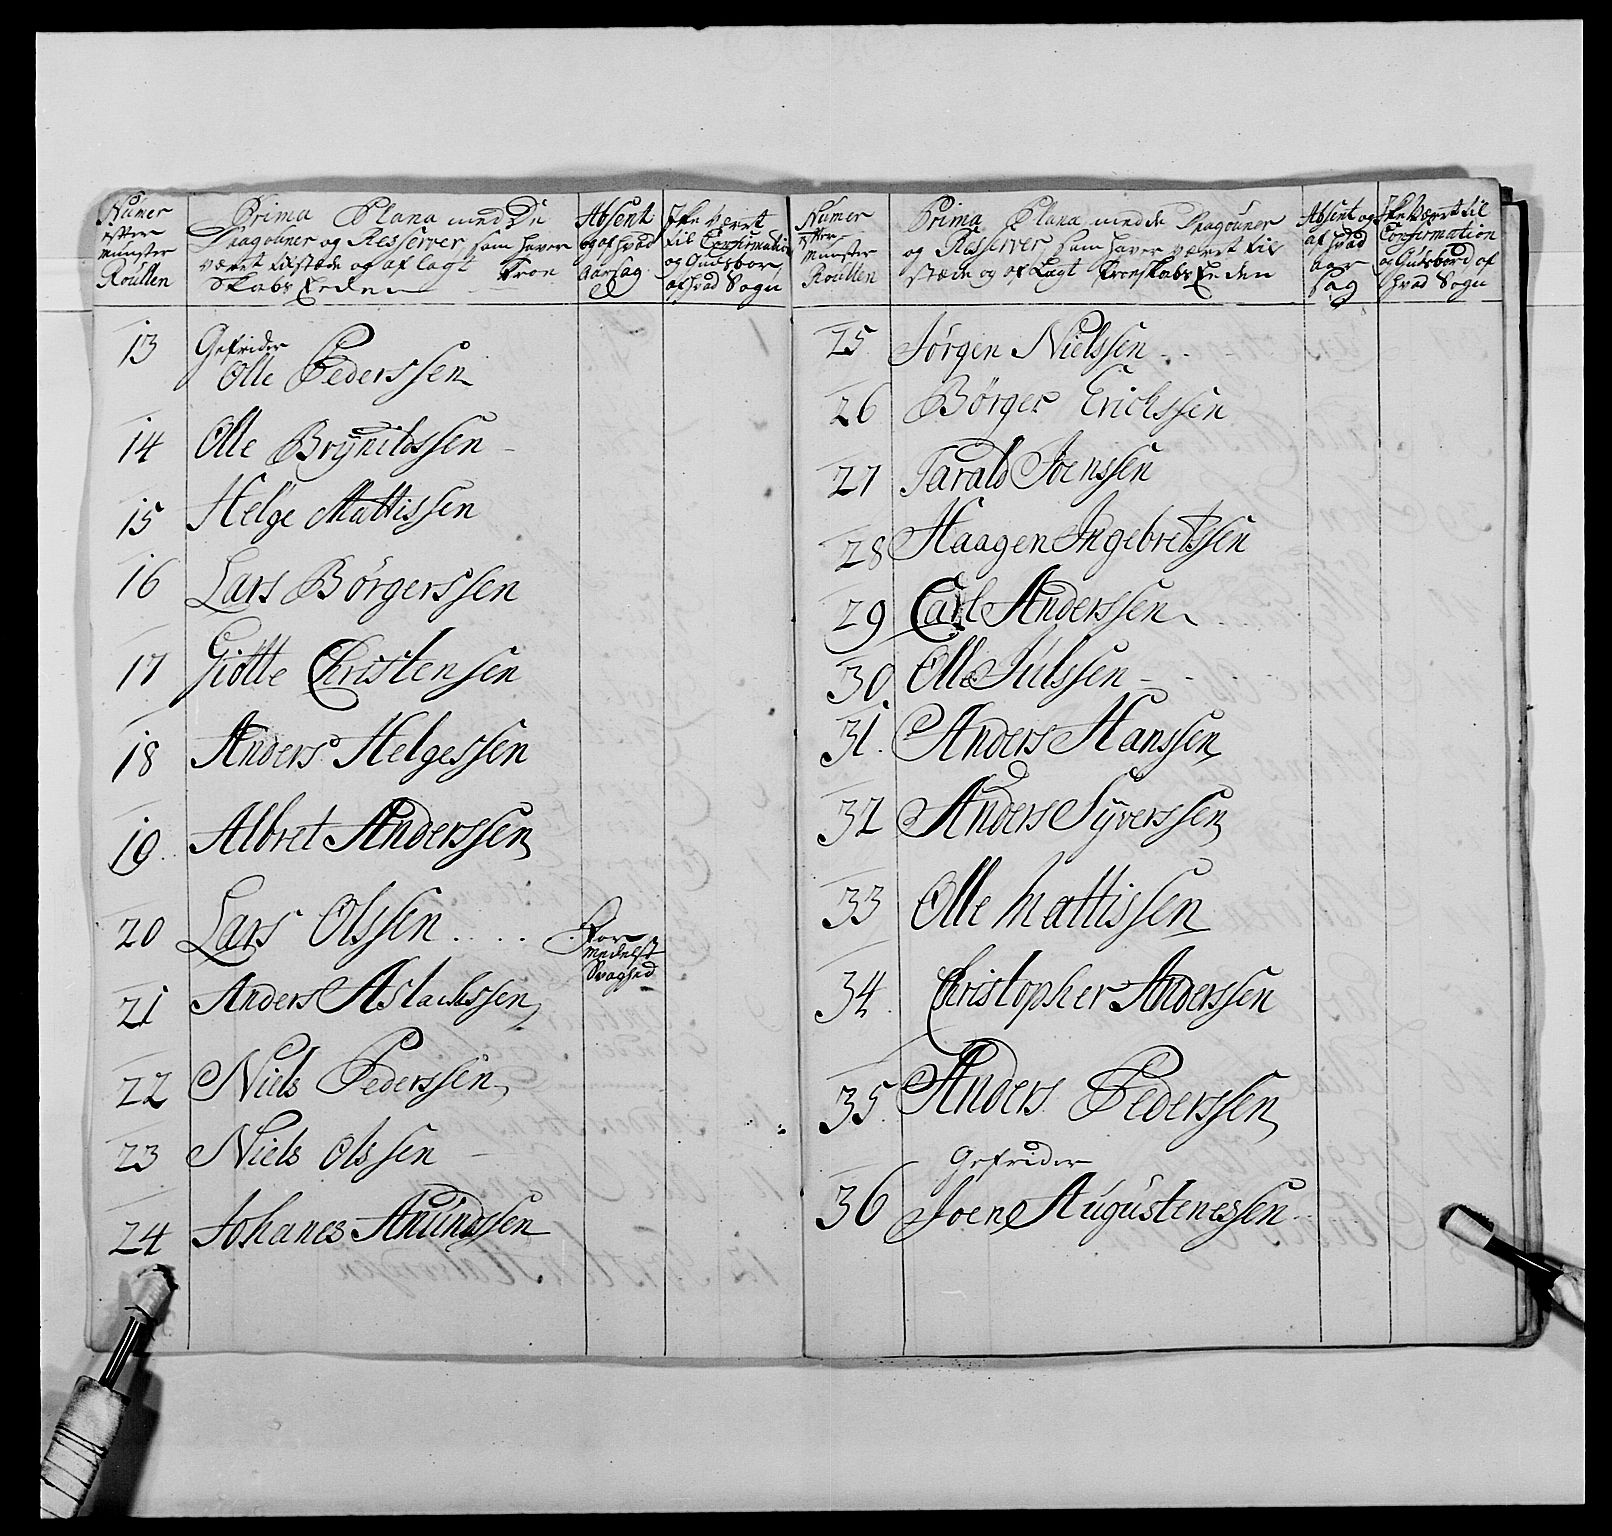 Numer
efter
Munster
Roullen
Prima Plana med De
Dragouner og Resserver som haver
været tilstæde og aflagt Troe
Skabs Eeden
Absent
og af hvad
Aarsag
Ike været
til Confirmation
og Gudsbord
af hvad Sogn
13 Gefrider
Olle Pederssen
14 Olle Brÿnildssen
15 Helge Mattissen
16 Lars Börgerssen
17 Giötte Christensen
18 Anders Helgessen
19 Albret Anderssen
20 Lars Olssen
For
medelst
Svaghed
21 Anders Aslachssen
22 Niels Pederssen
23 Niels Olssen
24 Johanes Amundssen
Numer
efter
Munster
Roullen
Prima Plana med de Dragouner
og Resserver som haver været til
stæde og af Lagt Troeskabs Eeden
Absent og
af hvad
aar
sag
Ike Været til
Confirmation
og Gudsbord af
hvad Sogn
25 Jörgen Nielssen
26 Börger Erichssen
27 Tarald Joenssen
28 Haagen Ingebretssen
29 Carl Anderssen
30 Olle Julssen
31. Anders Hanssen
32 Anders Sÿverssen
33 Olle Mattissen
34 Christopher Anderssen
35 Anders Pederssen
Gefrider
36 Joen Augustenessen